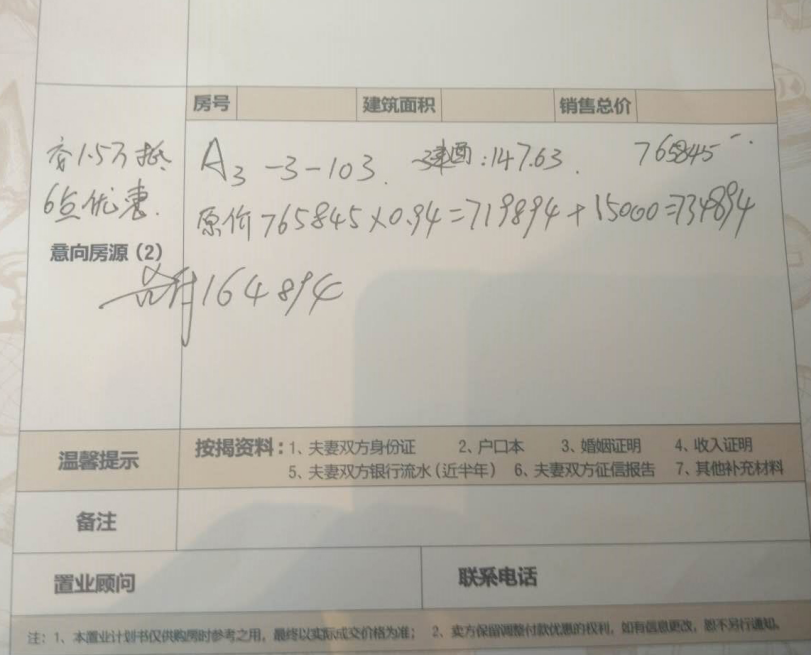 房号 建筑面积 销售总价
交1.5万抵 A3-3-103. 建面:147.63. 765845
6点优惠. 原价765845×0.94=719894+15000=734894
意向房源(2)
首付164894
温馨提示 按揭资料:1、夫妻双方身份证 2、户口本 3、婚姻证明 4、收入证明
5、夫妻双方银行流水(近半年) 6、夫妻双方征信报告 7、其他补充材料
备注
置业顾问 联系电话
注:1、本置业计划书仅供购房时参考之用,最终以实际成交价格为准; 2、卖方保留调整付款优惠的权利,如有信息更改,恕不另行通知。